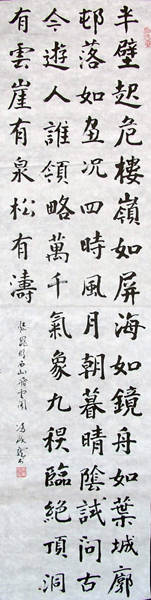 半壁起危樓嶺如屏海如鏡舟如葉城廓
邨落如畫況四時風月朝暮晴陰試問古
今遊人誰領略萬千氣象九秋臨絕頂洞
有雲崖有泉松有濤